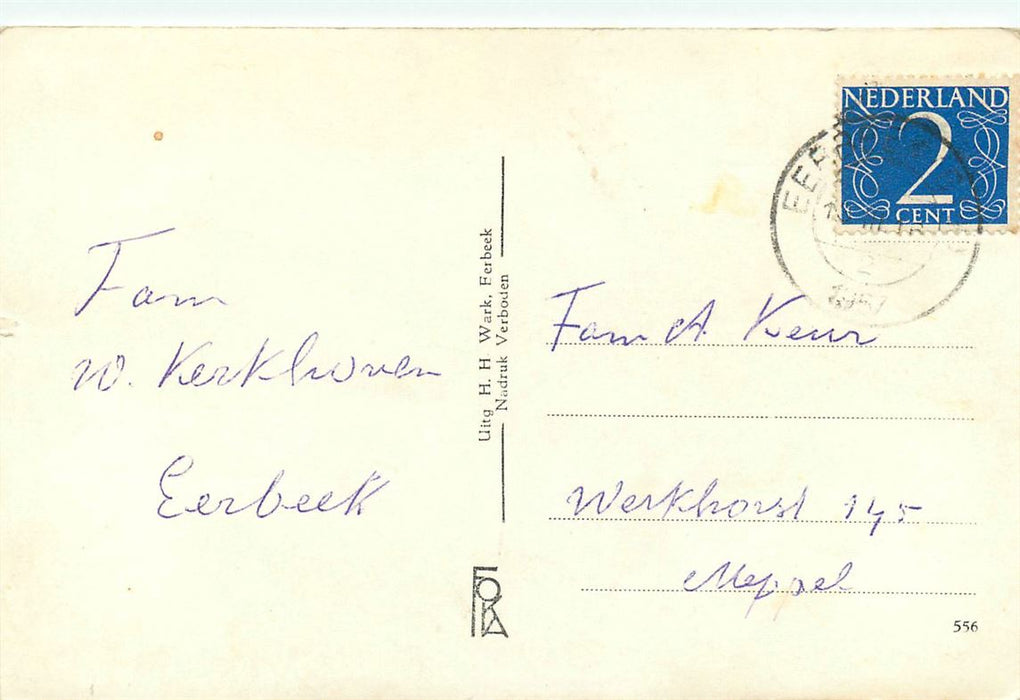 NEDERLAND
2
CENT
1957
Fam
W. Kerkhoven
Eerbeek
Uitg H. H Wark, Eerbeek
Nadruk Verboden
FOKA
Fam A. Keur
Werkhorst 145
Meppel
556